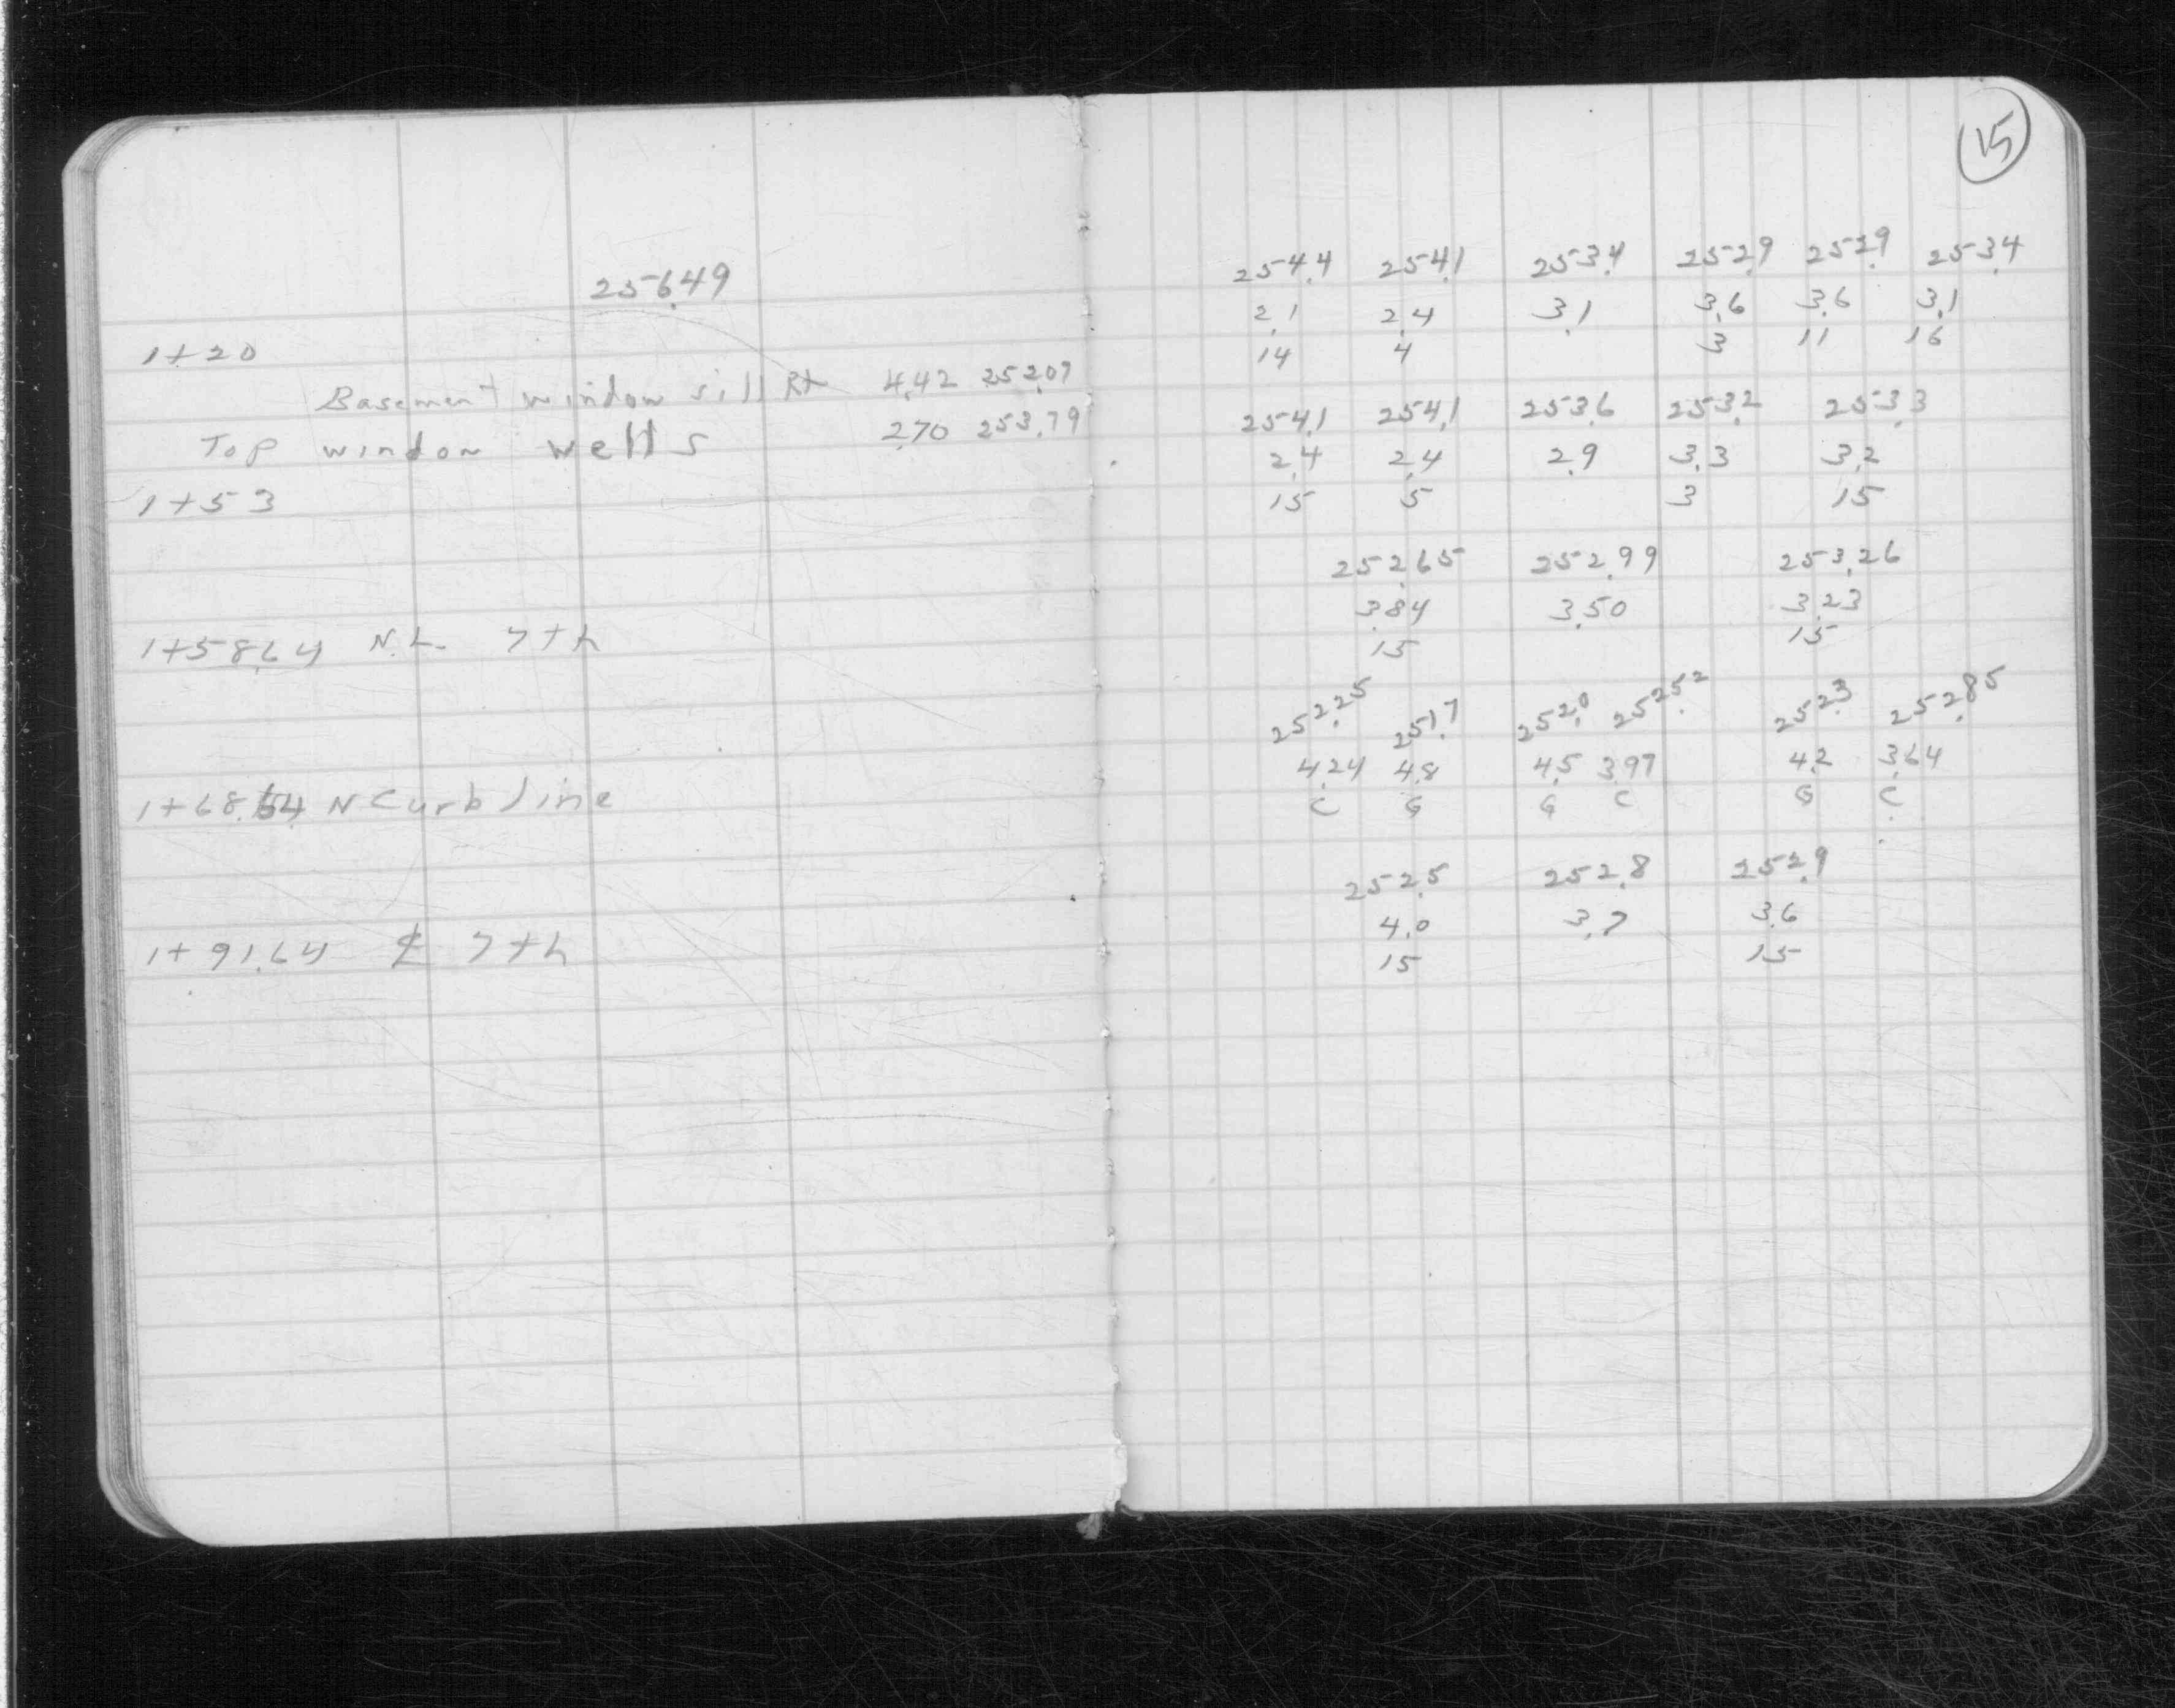 256.49
1+20
Basement window sill Rt 4.42 252.07
Top window wells 2.70 253.79
1+53
1+58.64 N.L. 7th
1+68.64 N Curb line
1+91.64 ℄ 7th
15
254.4 254.1 253.4 252.9 252.9 253.4
2.1 2.4 3.1 3.6 3.6 3.1
14 4 3 11 16
254.1 254.1 253.6 253.2 253.3
2.4 2.4 2.9 3.3 3.2
15 5 3 15
252.65 252.99 253.26
3.84 3.50 3.23
15 15
252.25 251.7 252.0 252.52 252.3 252.85
4.24 4.8 4.5 3.97 4.2 3.64
C G G C G C
252.5 252.8 252.9
4.0 3.7 3.6
15 15